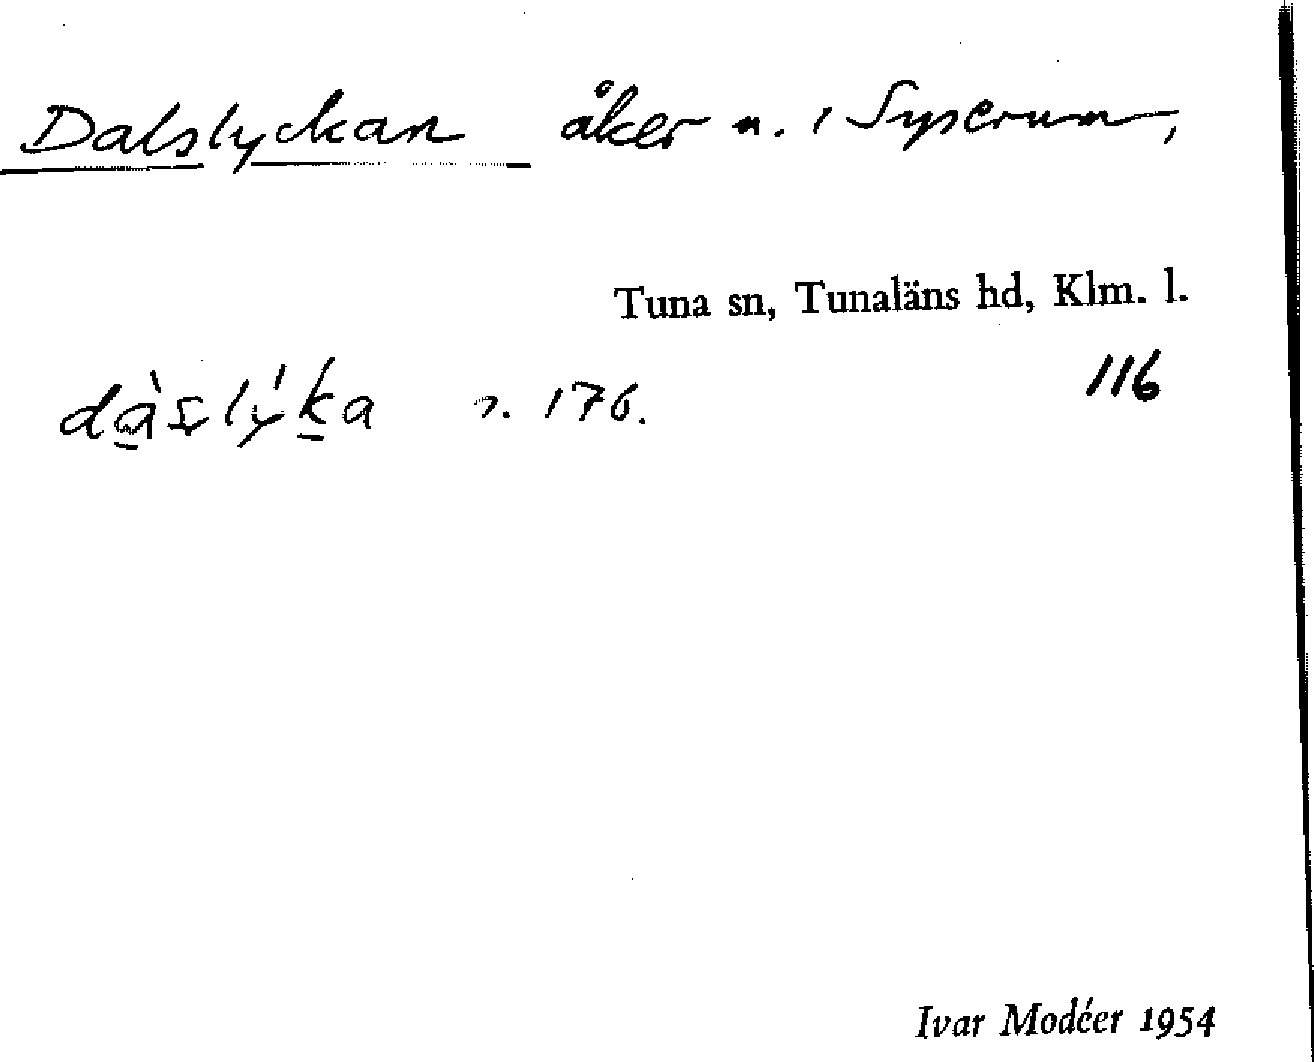 Dalslyckan åker n. i Syserum,
Tuna sn, Tunaläns hd, Klm. l.
116
dàslýka 176.
Ivar Modéer 1954